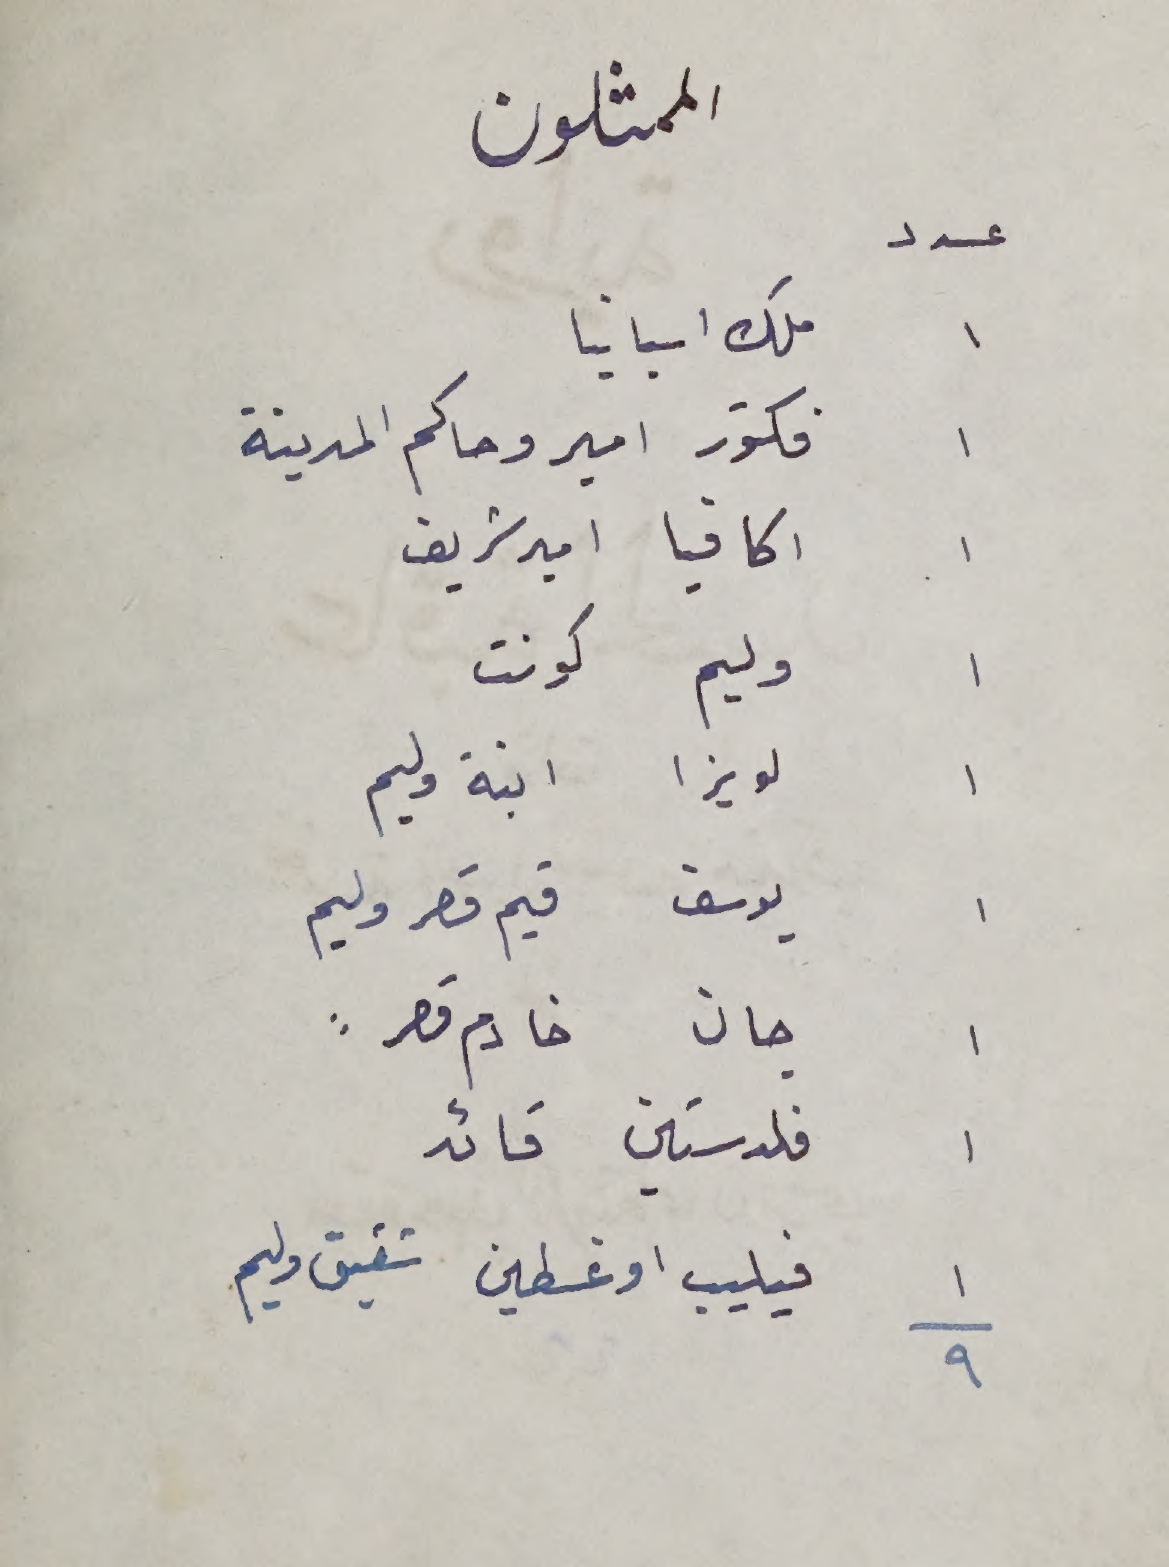 الممثلون
عدد
١ ملك اسبانيا
١ فكتور امير وحاكم المدينة
١ اكافيا امير شريف
١ وليم كونت
١ لويزا ابنة وليم
١ يوسف قيم قصر وليم
١ جان خادم قصر "
١ فلدستين قائد
١ فيليب اوغسطين شقيق وليم
٩